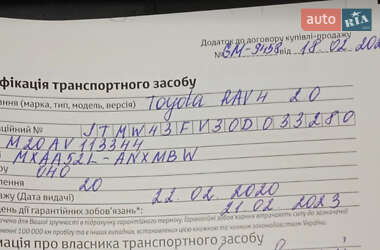 auto RIA
Додаток до договору купівлі-продажу
№ GM-9458 від 18.02.202
фікація транспортного засобу
ання (марка, тип, модель, версія) Toyota RAV4 2.0
аційний № JTMW43FV30D033280
M20AV113344
MXAA52L-ANXMBW
ру 040
лення 20
дажу (Дата видачі) 22.02.2020
ень дії гарантійних зобов'язань* 21.02.2023
мація про власника транспортного засобу